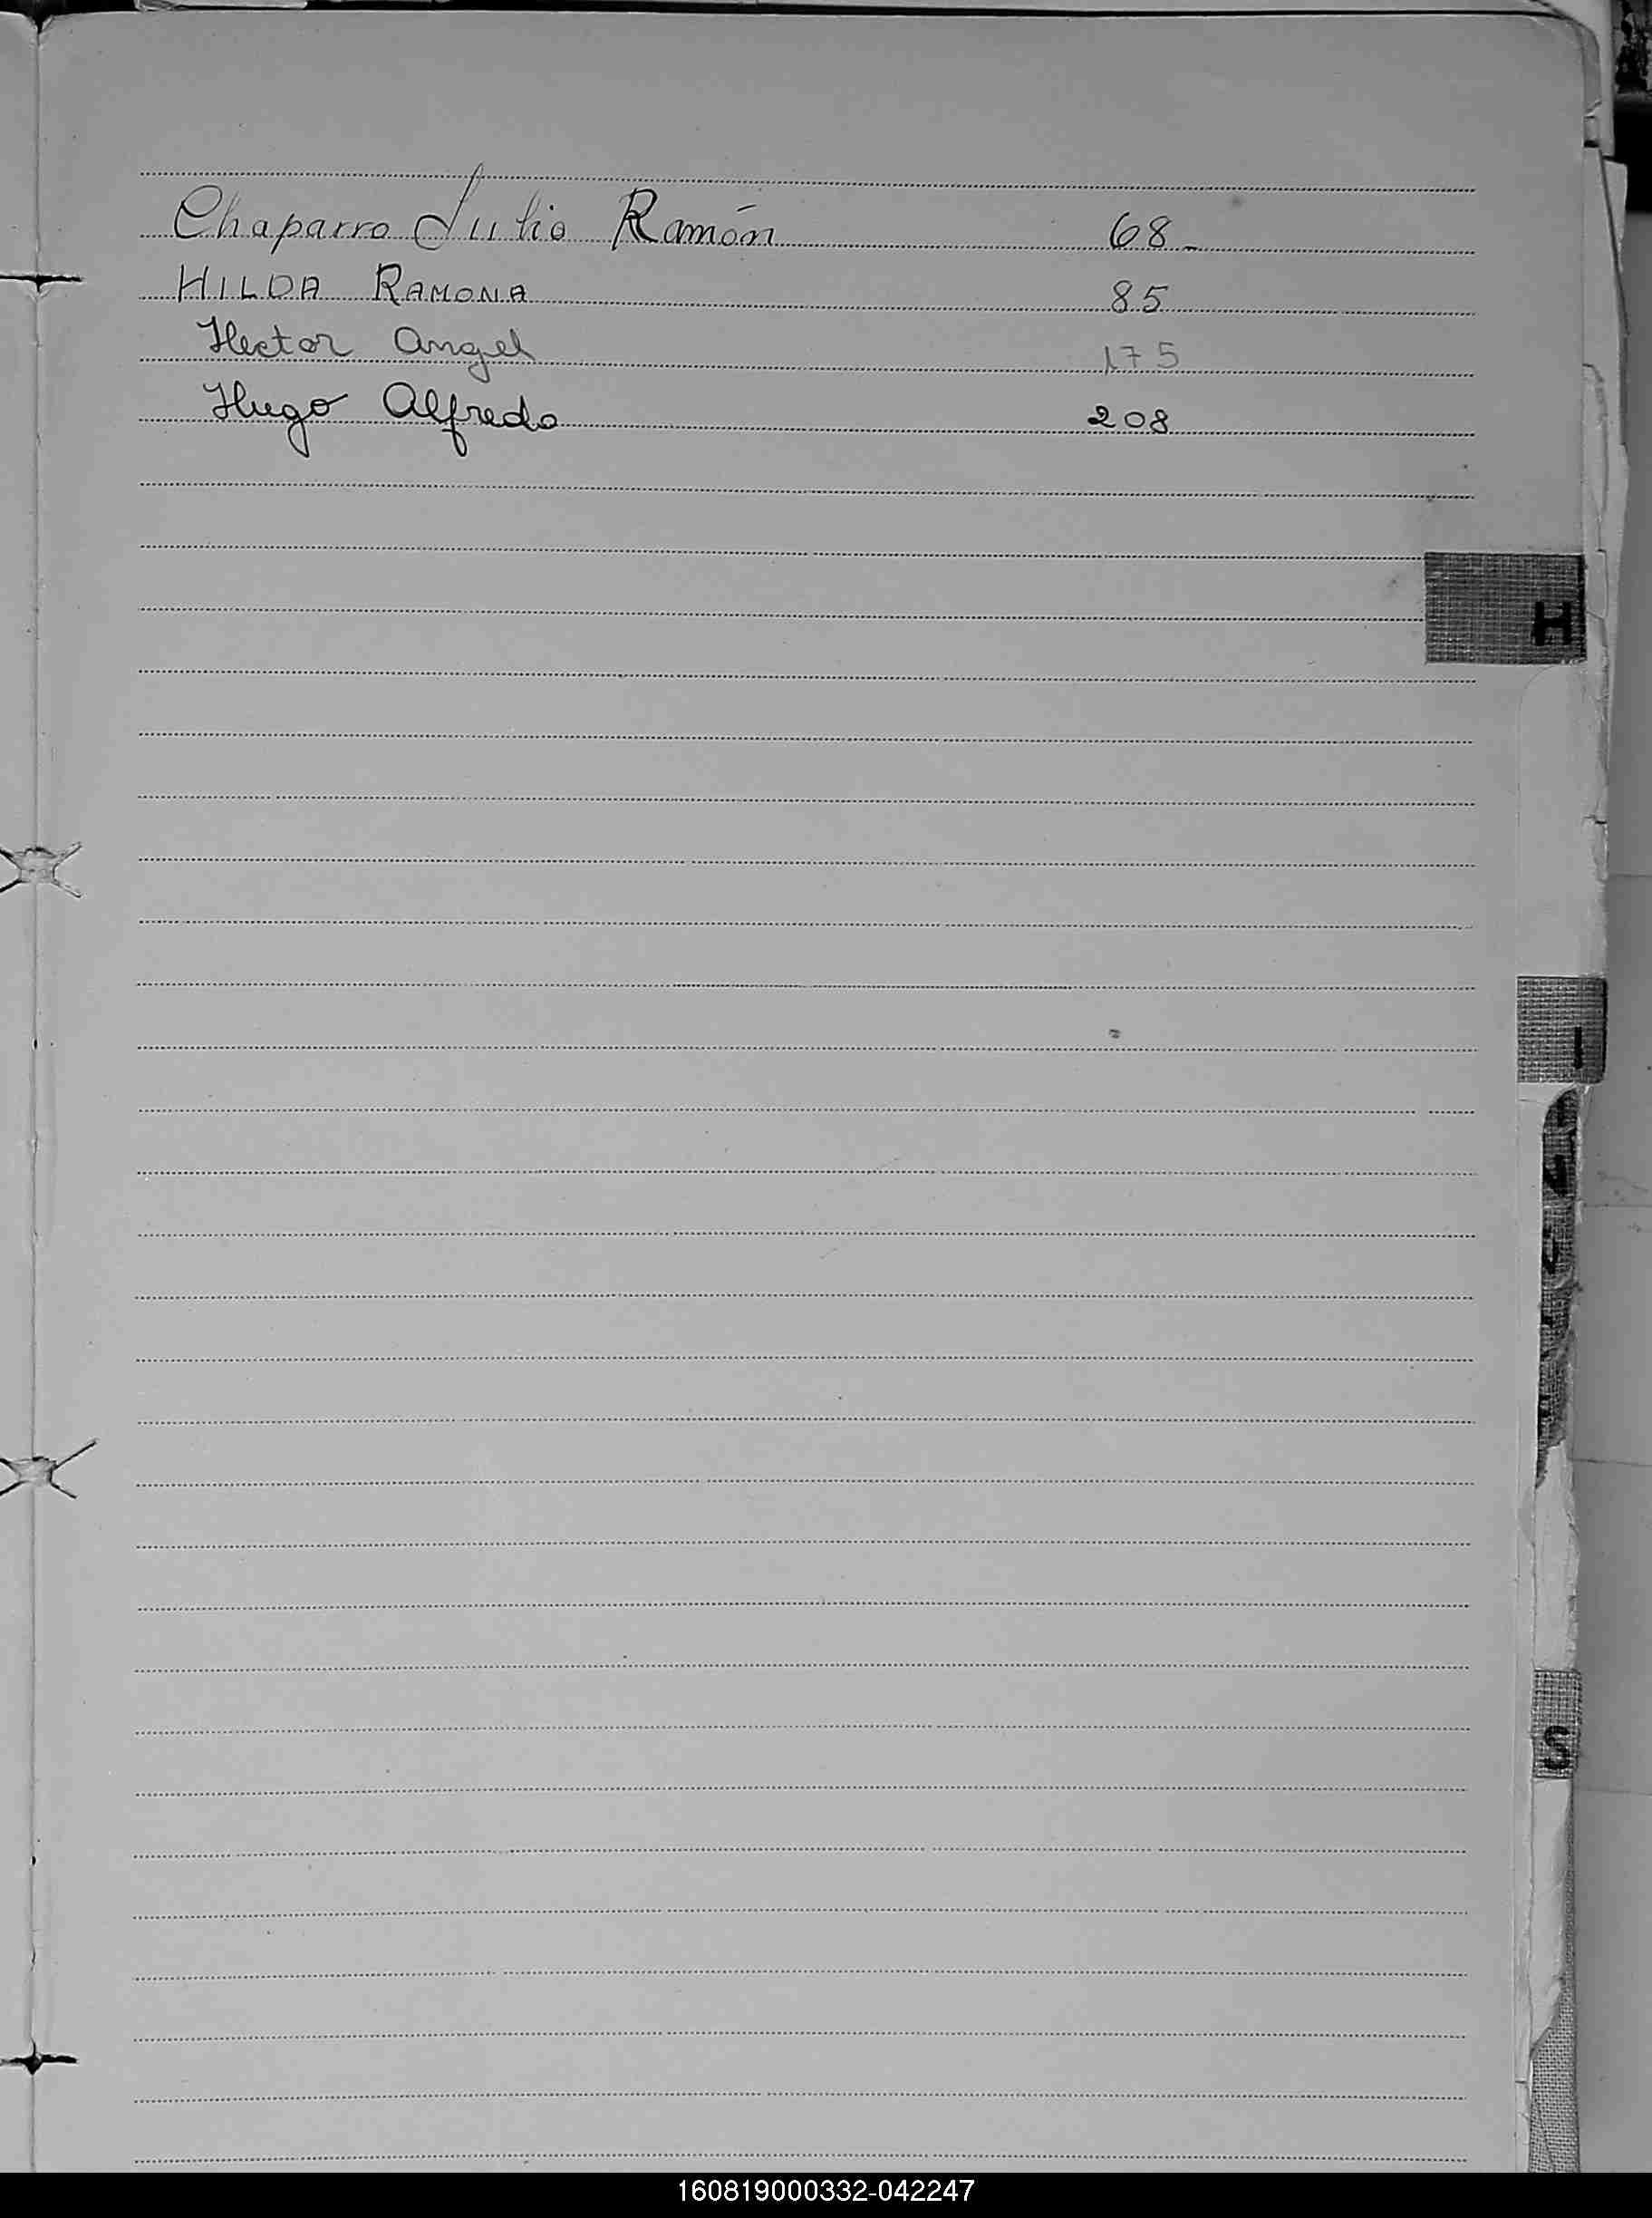 Chaparro Julio Ramón 68-
HILDA RAMONA 85
Hector Angel 175
Hugo Alfredo 208
H
I
S
160819000332-042247